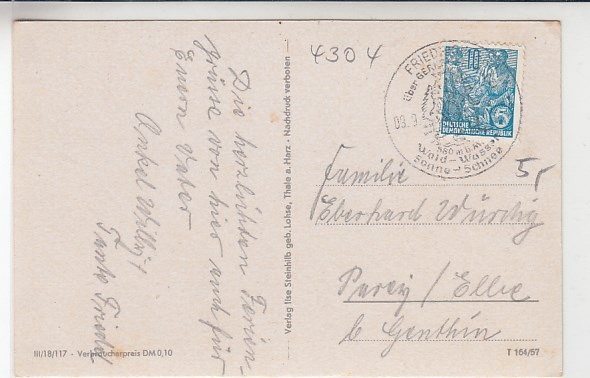 4304
Die herzlichsten Ferien-
grüsse von hier auch für
Euern Vater
Onkel Willy u
Tante Friedel
Verlag Ilse Steinhilb geb. Lohse, Thale a. Harz - Nachdruck verboten
FRIED
über GER
09.9
550 m ü. M.
Wald - Wasser
Sonne - Schnee
DEUTSCHE
DEMOKRATISCHE REPUBLIK
6
5,-
Familie
Eberhard Würdig
Parey / Elbe
b Genthin
III/18/117 - Verbraucherpreis DM 0,10
T 164/57